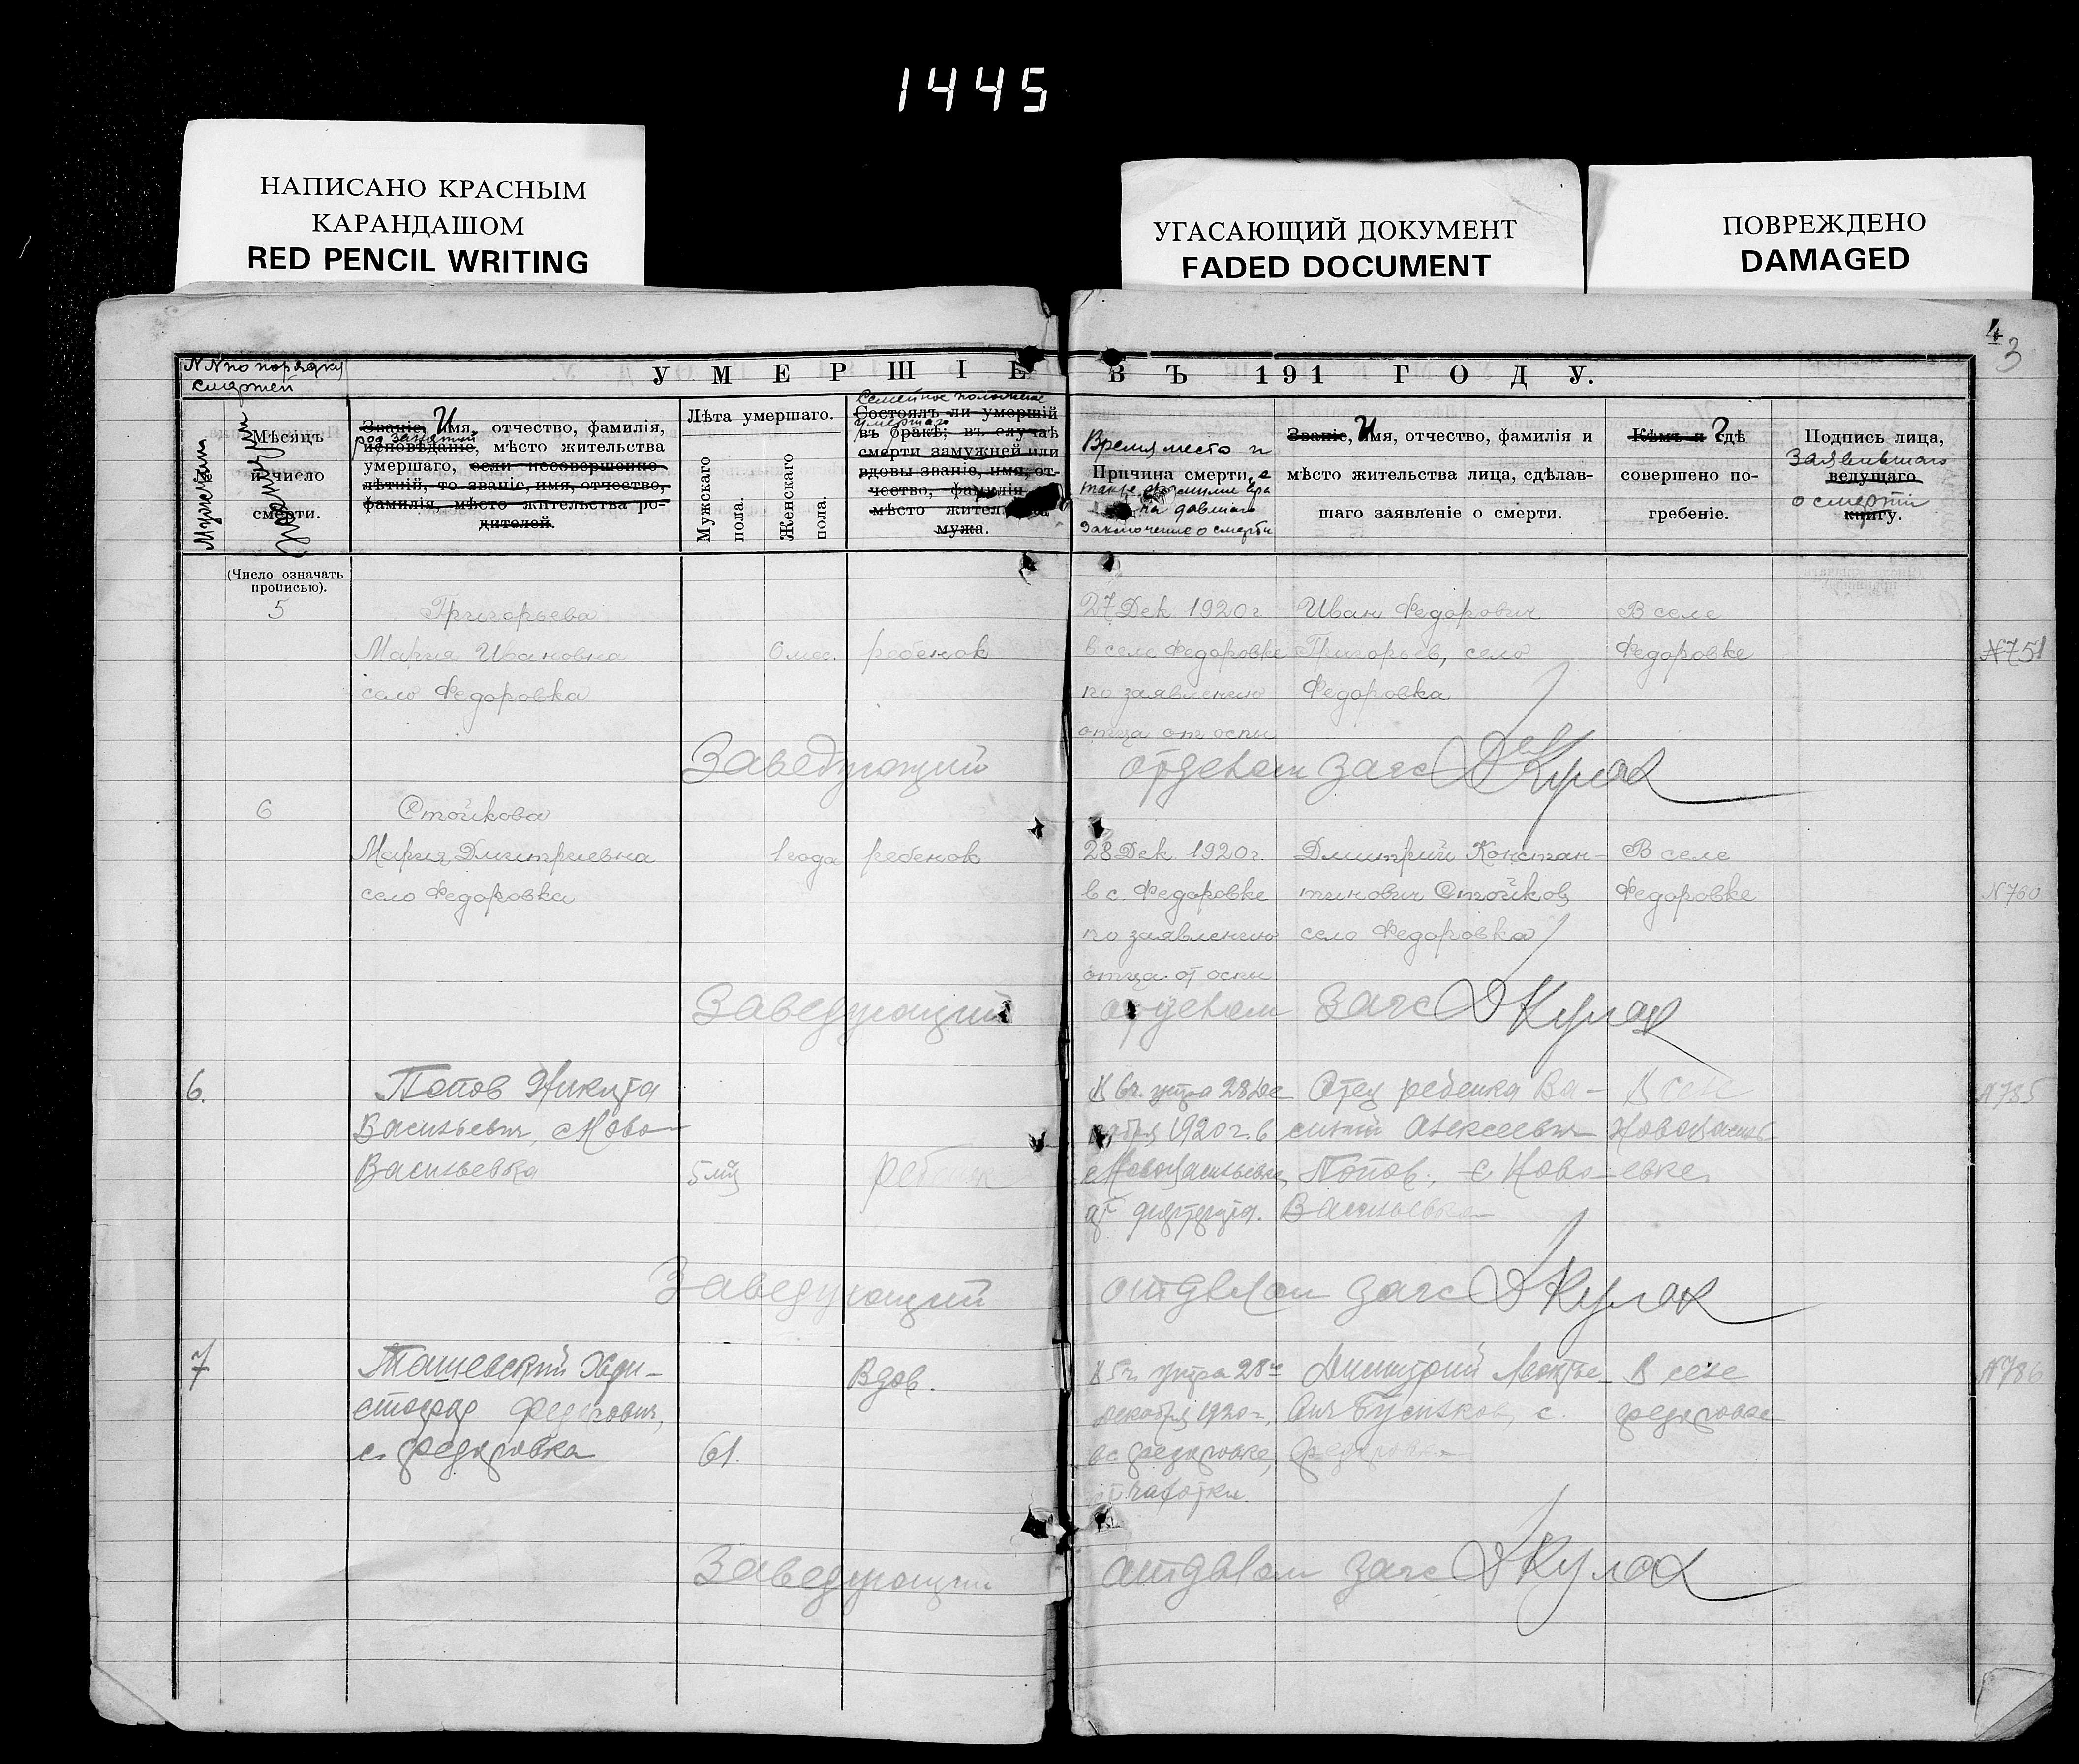 1445
НАПИСАНО КРАСНЫМ
КАРАНДАШОМ
RED PENCIL WRITING
УГАСАЮЩИЙ ДОКУМЕНТ
FADED DOCUMENT
ПОВРЕЖДЕНО
DAMAGED
4
3
NN по порядку
смертей
УМЕРШІЕ ВЪ 191 ГОДУ.
Мужчин
Женщин
Мѣсяцъ
и число
смерти.
Званіе, И Имя, отчество, фамилія,
род занятий
исповѣданіе, мѣсто жительства
умершаго, если несовершенно-
лѣтній, то званіе, имя, отчество,
фамилія, мѣсто жительства ро-
дителей.
Лѣта умершаго.
Мужскаго
пола.
Женскаго
пола.
Семейное положение
умершаго
Состоялъ ли умершій
въ бракѣ; въ случаѣ
смерти замужней или
вдовы званіе, имя, от-
чество, фамилія,
мѣсто жительства
мужа.
Время место и
Причина смерти,
давшаго
заключение о смерти
Званіе, И имя, отчество, фамилія и
мѣсто жительства лица, сдѣлав-
шаго заявленіе о смерти.
Кѣмъ и Гдѣ
совершено по-
гребеніе.
Подпись лица,
Заявившаго
ведущаго
о смерти
книгу.
(Число означать
прописью).
5 Григорьева 27 Дек 1920 г. Иван Федорович В селе
Мария Ивановна 6 мес. ребенок в селе Федоровке Григорьев, село Федоровке N751
село Федоровка по заявлению Федоровка
отца от оспы
Заведующий отделом загс Кулак
6 Стойкова
Мария Дмитриевна 1 года ребенок 28 Дек 1920 г. Дмитрий Констан- В селе
село Федоровка в с. Федоровке тинович Стойков Федоровке N760
по заявлению село Федоровка
отца от оспы
Заведующий отделом Загс Кулак
6. Попов Никита В 6 ч. утра 28 Де Отец ребенка Ва- В селе N785
Васильевич, с Ново- кабря 1920 г. в силий Алексеевич НовоВасиль
Васильевка 5 мц ребенок с НовоВасильевке, Попов, с Ново- евке.
Васильевка
Заведующий отделом загс Кулак
7 Ташевский Хри- Вдов. В 5 ч. утра 28 Димитрий В селе N786
стофор Федорович, декабря 1920 г., с. Федоровке
с. Федоровка 61. в с Федоровке, Федоровка
от чахотки.
Заведующий отделом загс Кулак